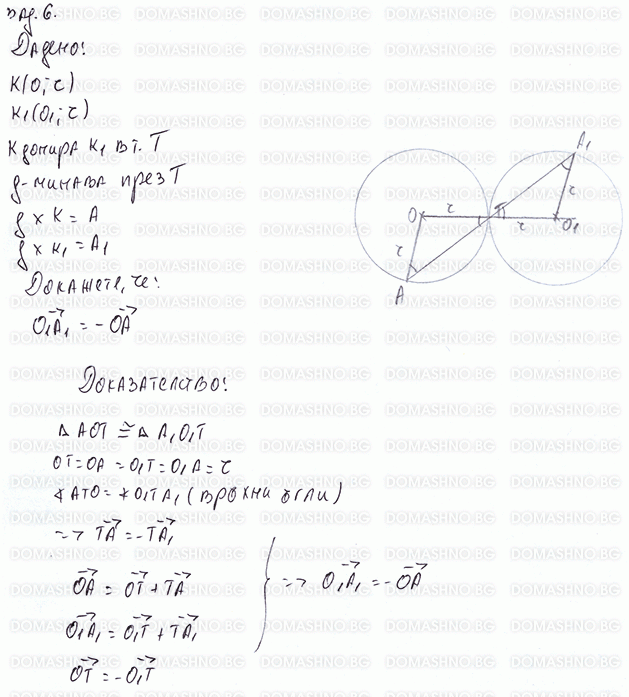 зад. 6.
Дадено:
K(O; r)
K₁(O₁; r)
K допира K₁ в т. T
g - минава през T
g x K = A
g x K₁ = A₁
Докажете, че:
O₁A₁→ = -OA→
Доказателство:
Δ AOT ≅ Δ A₁O₁T
OT = OA = O₁T = O₁A = r
∢ ATO = ∢ O₁TA₁ (връхни ъгли)
=> TA→ = -TA₁→
OA→ = OT→ + TA→
O₁A₁→ = O₁T→ + TA₁→
OT→ = -O₁T→
=> O₁A₁→ = -OA→
A₁
O r T r O₁
r
r
A
DOMASHNO.BG